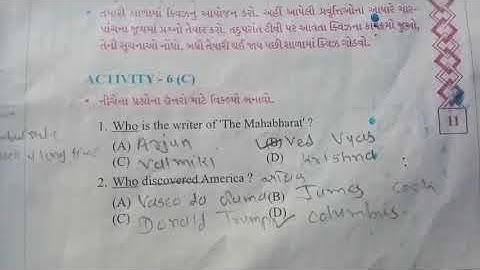 તમારી શાળામાં ક્વિઝનું આયોજન કરો. અહીં આપેલી પ્રવૃત્તિઓના આધારે ચાર-
પાંચના જૂથમાં પ્રશ્નો તૈયાર કરો. તદુપરાંત ટીવી પર આવતા ક્વિઝના કાર્યક્રમો જુઓ,
તેની સૂચનાઓ નોંધો. બધી તૈયારી થઈ જાય પછી શાળામાં ક્વિઝ ગોઠવો.
ACTIVITY - 6 (C)
• નીચેના પ્રશ્નોના ઉત્તરો માટે વિકલ્પો બનાવો.
1. Who is the writer of 'The Mahabharat' ?
(A) Arjun (B) Ved Vyas
(C) Valmiki (D) Krishna
2. Who discovered America ?
(A) Vasco da Gama (B) James Cook
(C) Donald Trump (D) Columbus.
11